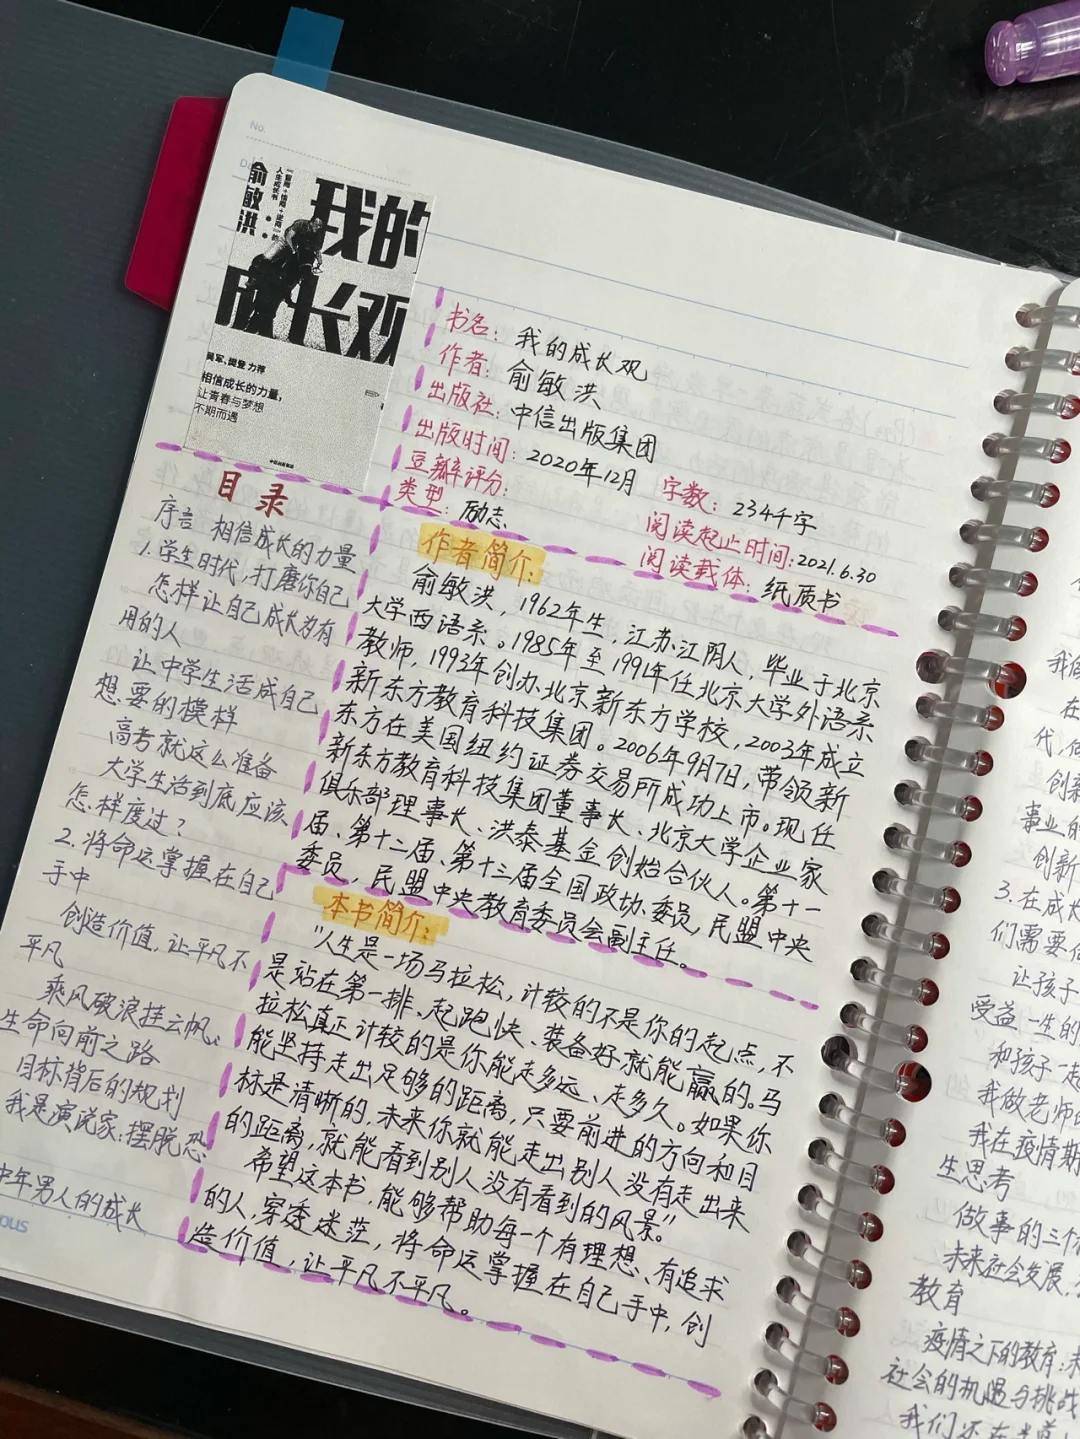 No.
俞敏洪：
“智商+情商+逆商”的
人生成长书
我的
成长观
吴军、樊登 力荐
相信成长的力量，
让青春与梦想
不期而遇
书名：我的成长观
作者：俞敏洪
出版社：中信出版集团
出版时间：2020年12月
字数：234千字
豆瓣评分：
阅读起止时间：2021.6.30
类型：励志
阅读载体：纸质书
目录
序言 相信成长的力量
1.学生时代，打磨你自己
怎样让自己成长为有
用的人
让中学生活成自己
想要的模样
高考就这么准备
大学生活到底应该
怎样度过？
2.将命运掌握在自己
手中
创造价值，让平凡不
平凡
乘风破浪挂云帆、
生命向前之路
目标背后的规划
我是演说家：摆脱恐
中年男人的成长
作者简介：
俞敏洪，1962年生，江苏江阴人，毕业于北京
大学西语系。1985年至1991年任北京大学外语系
教师，1993年创办北京新东方学校，2003年成立
新东方教育科技集团。2006年9月7日，带领新
东方在美国纽约证券交易所成功上市。现任
新东方教育科技集团董事长、北京大学企业家
俱乐部理事长、洪泰基金创始合伙人。第十一
届、第十二届、第十三届全国政协委员，民盟中央
委员，民盟中央教育委员会副主任。
本书简介：
“人生是一场马拉松，计较的不是你的起点，不
是站在第一排、起跑快、装备好就能赢的。马
拉松真正计较的是你能走多远、走多久。如果你
能坚持走出足够的距离，只要前进的方向和目
标是清晰的，未来你就能走出别人没有走出来
的距离，就能看到别人没有看到的风景。”
希望这本书，能够帮助每一个有理想、有追求
的人，穿透迷茫，将命运掌握在自己手中，创
造价值，让平凡不平凡。
我做
在
代，
创新
事业的
创新
3.在成长
们需要
让孩子
受益一生的
和孩子一起
我做老师
我在疫情期
生思考
做事的三个
未来社会发展，
教育
疫情之下的教育：未
社会的机遇与挑战
我们还在